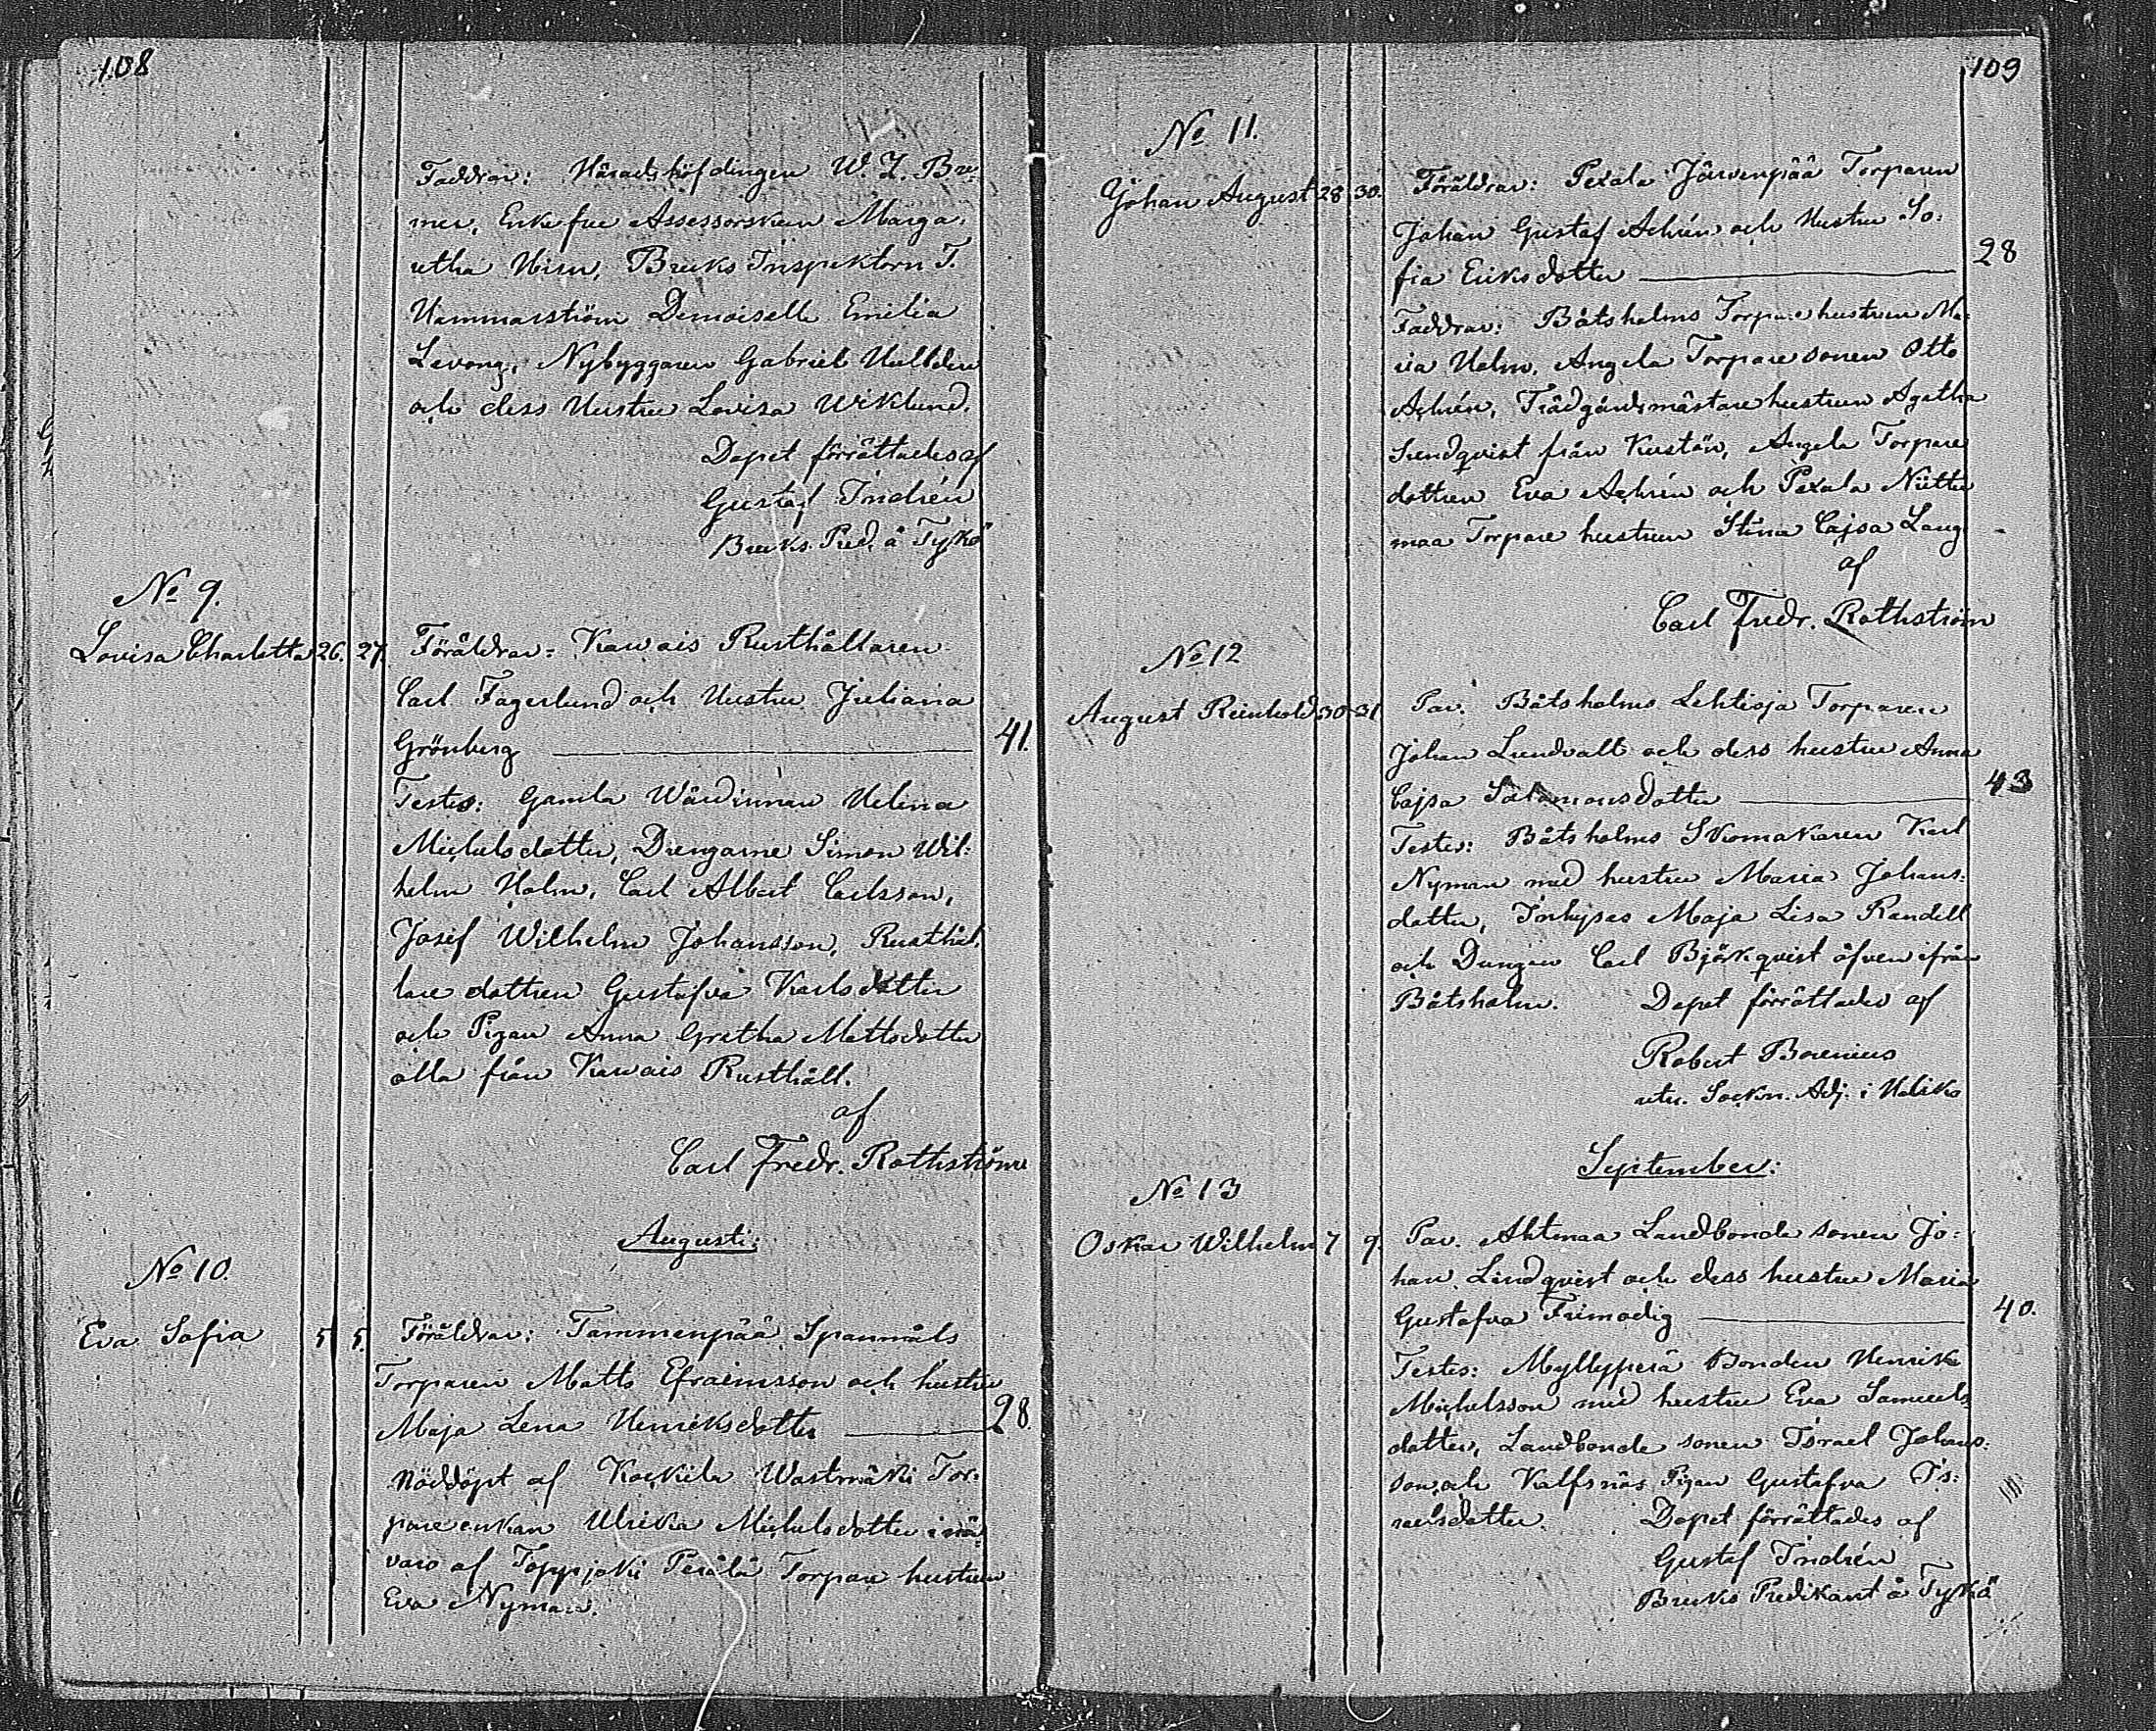 108
Faddrar: Häradshöfdingen W. Z. Bre-
mer, Enkefru Assessorskan Marga-
retha Hisn, Bruks Inspektorn T.
Hammarström Demoiselle Emilia
Levong, Nybyggaren Gabriel Hulldén
och dess Hustru Lovisa Wiklund.
Dopet förrättades af
Gustaf Indrén
Bruks Pred. å Tykö
No 9.
Lovisa Charlotta 26. 27. Föräldrar: Kavais Rusthållaren
Carl Fagerlund och Hustru Juliana
Grönberg 41.
Testes: Gamla Wärdinnan Helena
Michelsdotter, Drengarne Simon Wil-
helm Holm, Carl Albert Carlsson,
Josef Wilhelm Johansson, Rusthål-
lare dottren Gustafva Karlsdotter
och Pigan Anna Gretha Mattsdotter
alla från Kavais Rusthåll.
af
Carl Fredr. Rothström
Augusti:
No 10.
Eva Sofia 5 5. Föräldrar: Tammenpää Spanmåls
Torparen Matts Efraimsson och hustru
Maja Lena Henriksdotter 28.
Nöddöpt af Kockila Wastmäki Tor-
pare enkan Ulrika Michelsdotter i när-
varo af Toppjoki Perälä Torpare hustrun
Eva Nyman.
109
No 11.
Johan August 28 30. Föräldrar: Pexala Järvenpää Torparen
Johan Gustaf Achrén och Hustru So-
fia Eriksdotter 28
Faddrar: Båtsholms Torpare hustrun Ma-
ria Holm, Angela Torpare sonen Otto
Achrén, Trädgårdsmästare hustrun Agatha
Sundqvist från Kustön, Angela Torpare
dottren Eva Achrén och Pexala Niitty
maa Torpare hustrun Stina Cajsa Lang
af
Carl Fredr. Rothström
No 12
August Reinhold 30 31 Par. Båtsholms Lehtioja Torparen
Johan Lundvall och dess hustru Anna
Cajsa Salomonsdotter 43
Testes: Båtsholms Skomakaren Karl
Nyman med hustru Maria Johans-
dotter, Inhyses Maja Lisa Randell
och Drängen Carl Björkqvist äfven ifrån
Båtsholm. Dopet förrättades af
Robert Borenius
Sockn. Adj. i Halikko
September:
No 13
Oskar Wilhelm 7 9. Par. Ahtmaa Landbonde sonen Jo-
han Lindqvist och dess hustru Maria
Gustafva Frimodig 40.
Testes: Myllyperä Bonden Henrik
Michelsson med hustru Eva Samuels
dotter, Landbonde sonen Israel Johans-
son, och Kalfsnäs Pigan Gustafva Is-
raelsdotter. Dopet förrättades af
Gustaf Indrén
Bruks Predikant å Tykö